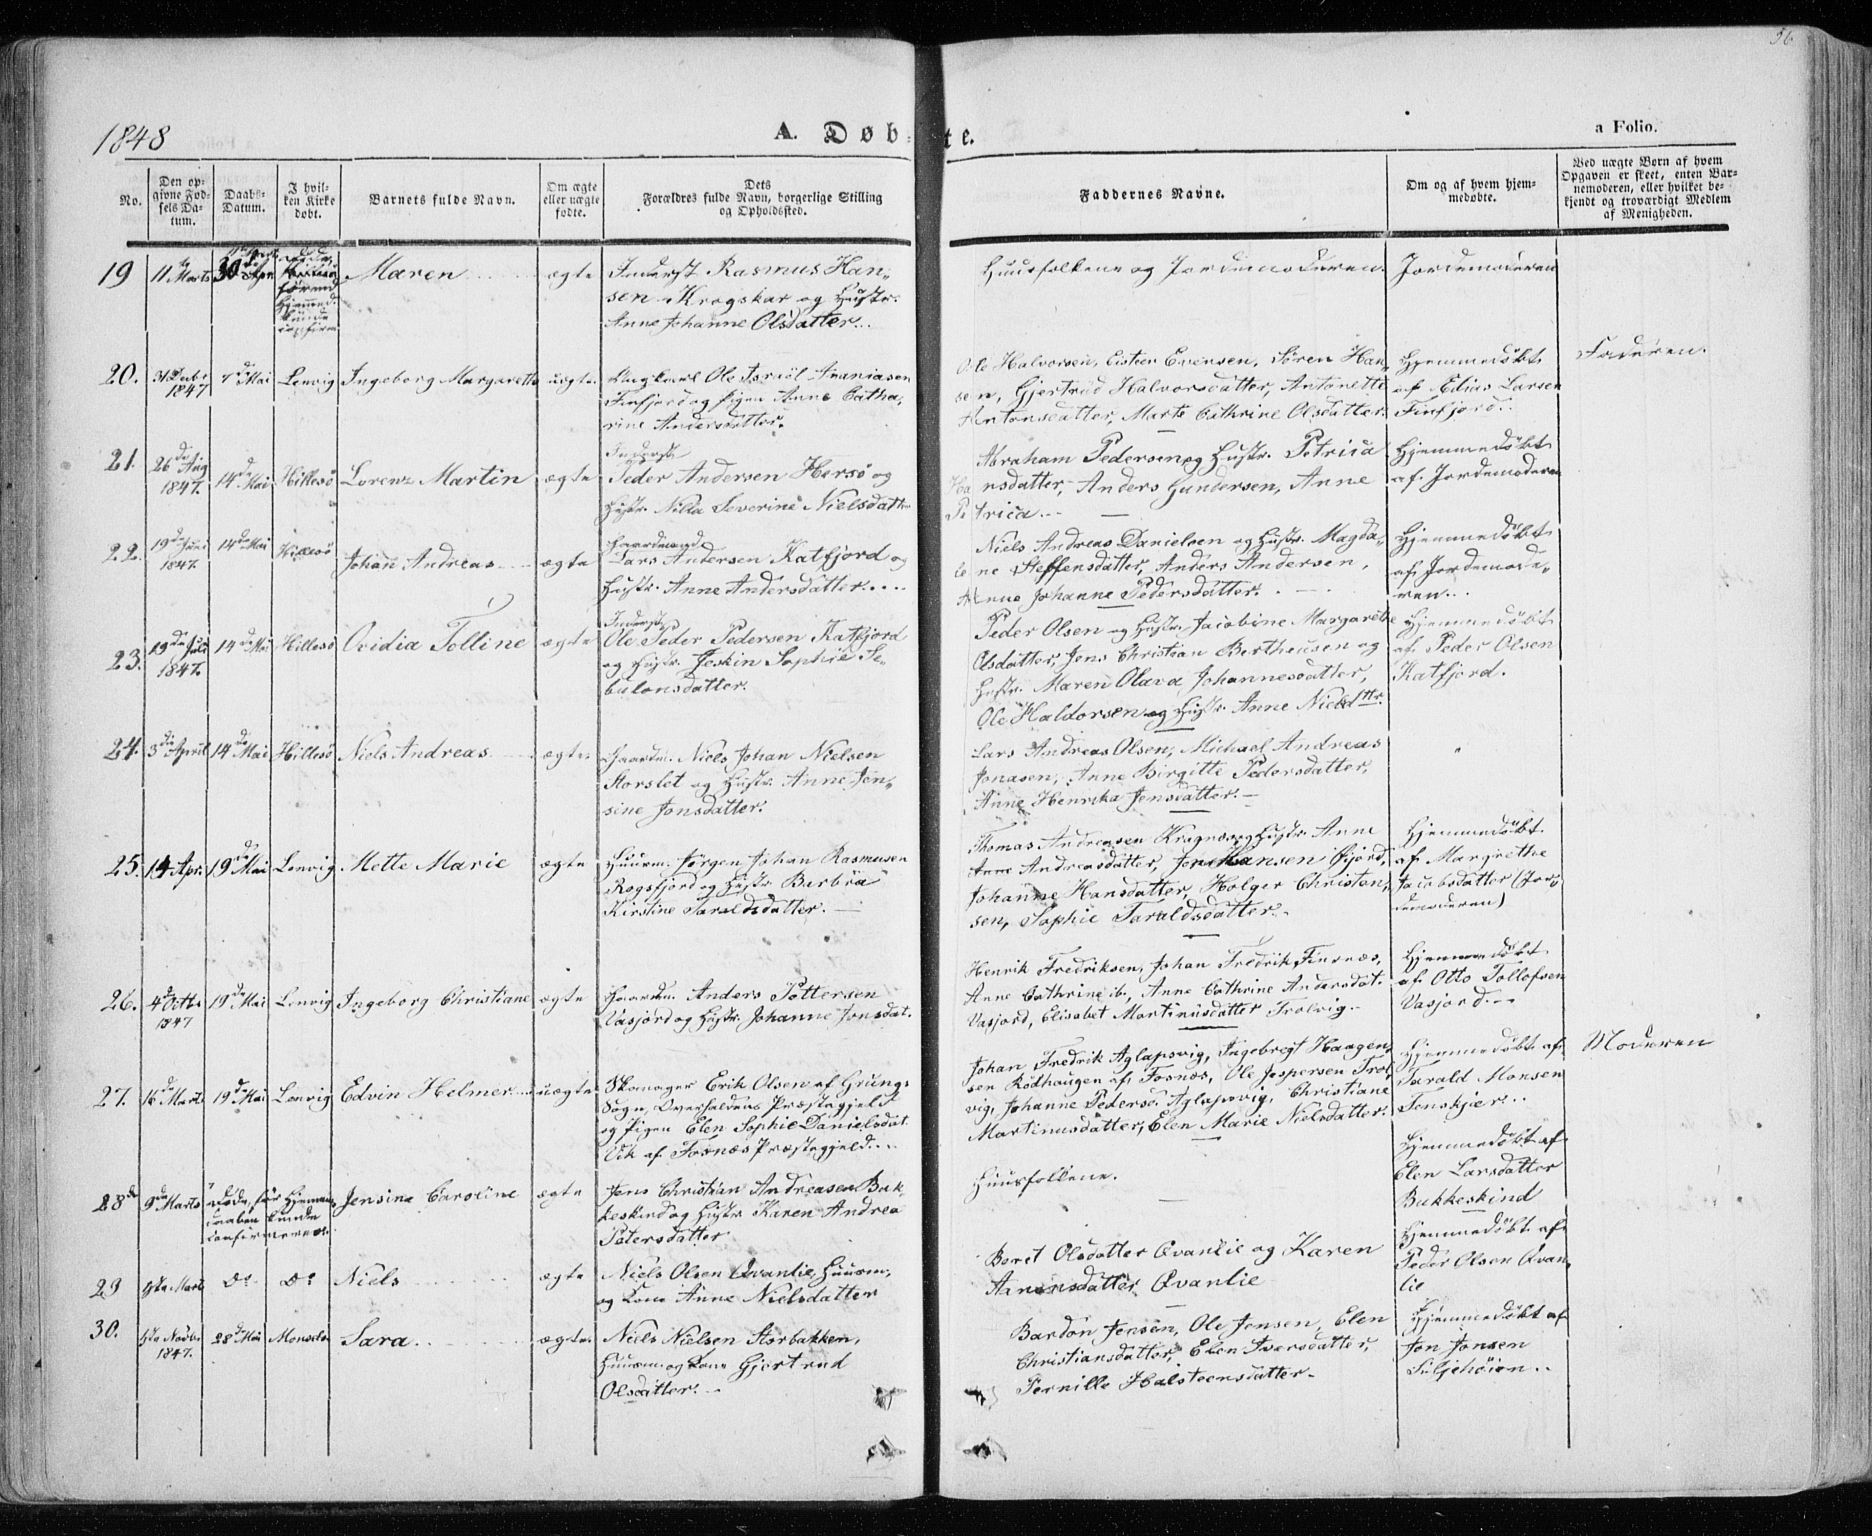 56
1848
A. Døb-
te.
a Folio.
No.
Den op-
givne Fød-
sels Da-
tum.
Daabs-
Datum.
I hvil-
ken Kirke
døbt.
Barnets fulde Navn.
Om ægte
eller uægte
fødte.
Dets
Forældres fulde Navn, borgerlige Stilling
og Opholdsted.
Faddernes Navne.
Om og af hvem hjem-
medøbte.
Ved uægte Børn af hvem
Opgaven er skeet, enten Bar-
nemoderen, eller hvilket be-
kjendt og troværdigt Medlem
af Menigheden.
19
11te Marts
30
døde
førend
Hjemmed.
kunde
confirm
Maren
ægte
Inderst Rasmus Han-
sen Krogskar og Hustr.
Anne Johanne Olsdatter.
Huusfolkene og Jordemoderen.
Jordemoderen
20.
31 Decbr
1847
7de Mai
Lenvig
Ingeborg Margarethe
uægte.
Ungkarl Ole Israël Ananiasen
Finfjord og Pigen Anne Catha-
rine Andersdatter.
Ole Halvorsen, Eisteen Evensen, Sören Han-
sen, Gjertrud Halvorsdatter, Antonette
Antonsdatter, Marte Cathrine Olsdatter.
Hjemmedöbt
af Edias Larsen
Finfjord.
Faderen.
21.
26de Aug
1847.
14de Mai
Hillesö
Lorenz Martin
ægte
Inderst
Peder Andersen Hersö og
Hustr. Nilla Severine Nielsdatter
Abraham Pedersen og Hustr. Petrica
Hansdatter, Anders Gundersen, Anne
Petrica.
Hjemmedöbt
af Jordemoderen
22.
19de Juni
1847.
14de Mai
Hillesö
Johan Andreas
ægte
Gaardmand
Lars Andersen Katfjord og
Hustr. Anne Andersdatter.
Niels Andreas Danielsen og Hustr. Magda-
lene Steffensdatter, Anders Andersen,
Anne Johanne Pedersdatter.
Hjemmedöbt
af Jordemode-
ren.
23.
19de Juli
1847.
14de Mai
Hillesö
Ovidia Tolline
ægte
Inderst
Ole Peder Pedersen Katfjord
og Hustr. Jeskin Sophie Se-
bulonsdatter.
Peder Olsen og Hustr. Jacobine Margarethe
Olsdatter, Jens Christian Bertheusen og
Hustr. Maren Olava Johannesdatter,
Ole Haldorsen og Hustr. Anne Nielsdttr.
Hjemmedöbt
af Peder Olsen
Katfjord.
24.
3de April
14de Mai
Hillesö
Niels Andreas
ægte.
Gaardm. Niels Johan Nielsen
Storslet og Hustr. Anne Jen-
sine Jonsdatter.
Lars Andreas Olsen, Michael Andreas
Jonasen, Anne Birgitte Pedersdatter,
Anne Henrika Jensdatter.
"
25.
14 Apr.
19de Mai
Lenvig
Mette Marie
ægte
Huusm. Jörgen Johan Rasmusen
Rogsfjord og Hustr. Barbra
Kirstine Taraldsdatter.
Thomas Andreasen Krognæs og Hustr. Anne
Anne Andreasdatter, Jens Hansen Gjord,
Johanne Hansdatter, Holger Christen-
sen, Sophie Taraldsdatter.
Hjemmedöbt
af Margrethe
Jacobsdatter (Jor-
demoderen)
26.
4de Octbr
1847
19de Mai
Lenvig
Ingeborg Christiane
ægte
Gaardm. Anders Pettersen
Vasjord og Hustr. Johanne Jonsdat.
Henrik Fredriksen, Johan Fredrik Finsnæs,
Anne Cathrine ib., Anne Cathrine Andersdat.
Vasjord, Elisabet Martinusdatter Trolvig.
Hjemmedöbt
af Otto Tollofsen
Vasjord.
27.
16de Marts
19de Mai
Lenvig
Edvin Helmer
uægte
Skomager Erik Olsen af Grung-
Sogn, Overhaldens Præstegjeld
og Pigen Elen Sophie Danielsdat.
Vik af Fosnæs Præstegjeld.
Johan Fredrik Aglapsvig, Ingebregt Haagen-
sen Rödhaugen af Fosnæs, Ole Jespersen Trol-
vig, Johanne Pedersd. Aglapsvig, Christiane
Martinusdatter, Elen Marie Nielsdatter.
Hjemmedöbt af
Tarald Monsen
Tenskjær.
Moderen
28
9de Marts
døde, för Hjemme-
daaben kunde
confirmeres.
Jensine Caroline
ægte
Jens Christian Andreasen Bak-
keskind og Hustr. Karen Andrea
Petersdatter
Huusfolkene.
Hjemmedöbt af
Elen Larsdatter
Bakkeskind
29
Marts
Do
Do
Niels
ægte
Niels Olsen Qvanlie, Huusm.
og Kone Anne Nielsdatter
Beret Olsdatter Qvanlie og Karen
Arnensdatter Qvanlie
Hjemmedöbt af
Peder Olsen Qvan-
lie
30.
Novbr.
1847.
28de Mai
Sara
ægte.
Niels Nielsen Storbakken,
Huusm. og Kone Gjertrud
Olsdatter.
Bardon Jensen, Ole Jensen, Elen
Christiansdatter, Elen Iversdatter,
Pernille Halsteensdatter.
Hjemmedöbt af
Jon Jonsen
Siljehöien.